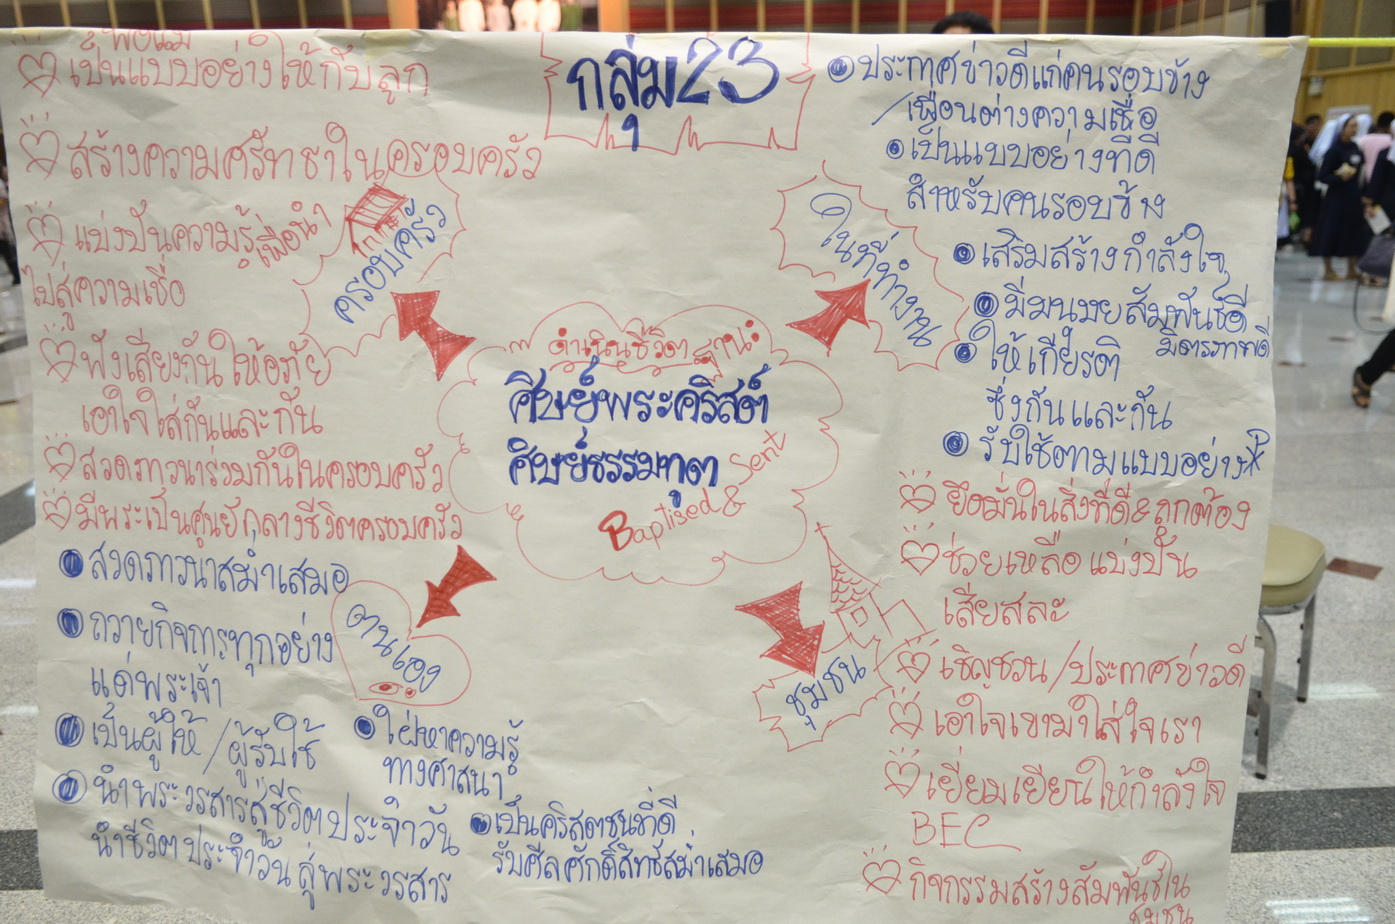 กลุ่ม 23
ดำเนินชีวิต ฐานะ
ศิษย์พระคริสต์
ศิษย์ธรรมทูต
Baptised & Sent
ครอบครัว
พ่อแม่
เป็นแบบอย่างให้กับลูก
สร้างความศรัทธาในครอบครัว
แบ่งปันความรู้เพื่อนำ
ไปสู่ความเชื่อ
ฟังเสียงกันให้อภัย
เอาใจใส่กันและกัน
สวดภาวนาร่วมกันในครอบครัว
มีพระเป็นศูนย์กลางชีวิตครอบครัว
ในที่ทำงาน
ประกาศข่าวดีแก่คนรอบข้าง
/เพื่อนต่างความเชื่อ
เป็นแบบอย่างที่ดี
สำหรับคนรอบข้าง
เสริมสร้างกำลังใจ
มีมนุษยสัมพันธ์ดี
มิตรภาพดี
ให้เกียรติ
ซึ่งกันและกัน
รับใช้ตามแบบอย่าง
ตนเอง
สวดภาวนาสม่ำเสมอ
ถวายกิจการทุกอย่าง
แด่พระเจ้า
เป็นผู้ให้ /ผู้รับใช้
นำพระวรสารสู่ชีวิตประจำวัน
นำชีวิตประจำวันสู่พระวรสาร
ใฝ่หาความรู้
ทางศาสนา
เป็นคริสตชนที่ดี
รับศีลศักดิ์สิทธิ์สม่ำเสมอ
ชุมชน
ยึดมั่นในสิ่งที่ดี & ถูกต้อง
ช่วยเหลือ แบ่งปัน
เสียสละ
เชิญชวน /ประกาศข่าวดี
เอาใจเขามาใส่ใจเรา
เยี่ยมเยียนให้กำลังใจ
BEC
กิจกรรมสร้างสัมพันธ์ใน
ชุมชน